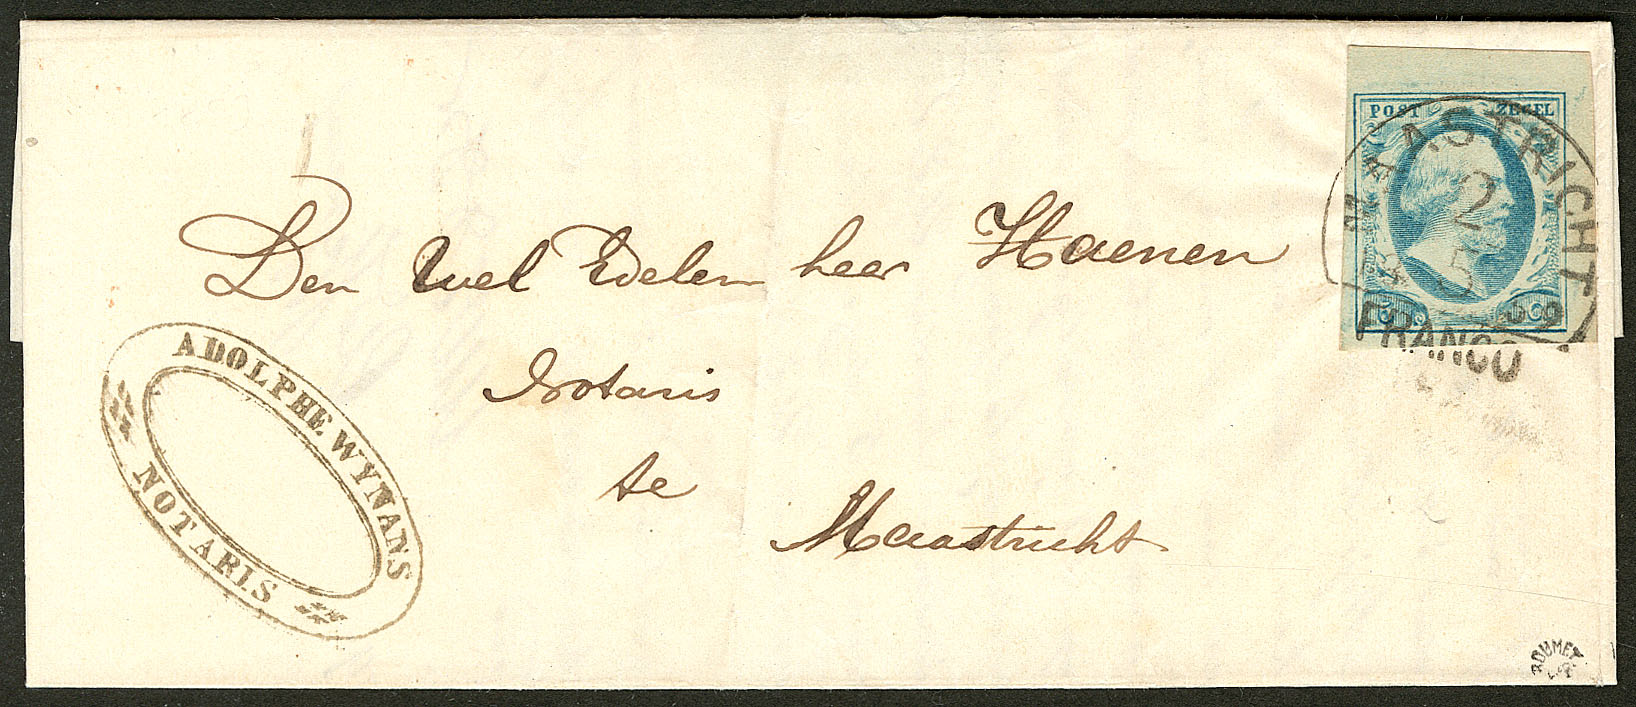 POST ZEGEL
MAASTRICHT
2
5
FRANCO
Den Wel Edelen heer Haenen
Notaris
te
Maastricht
ADOLPHE WYNANS
NOTARIS
ROUMET